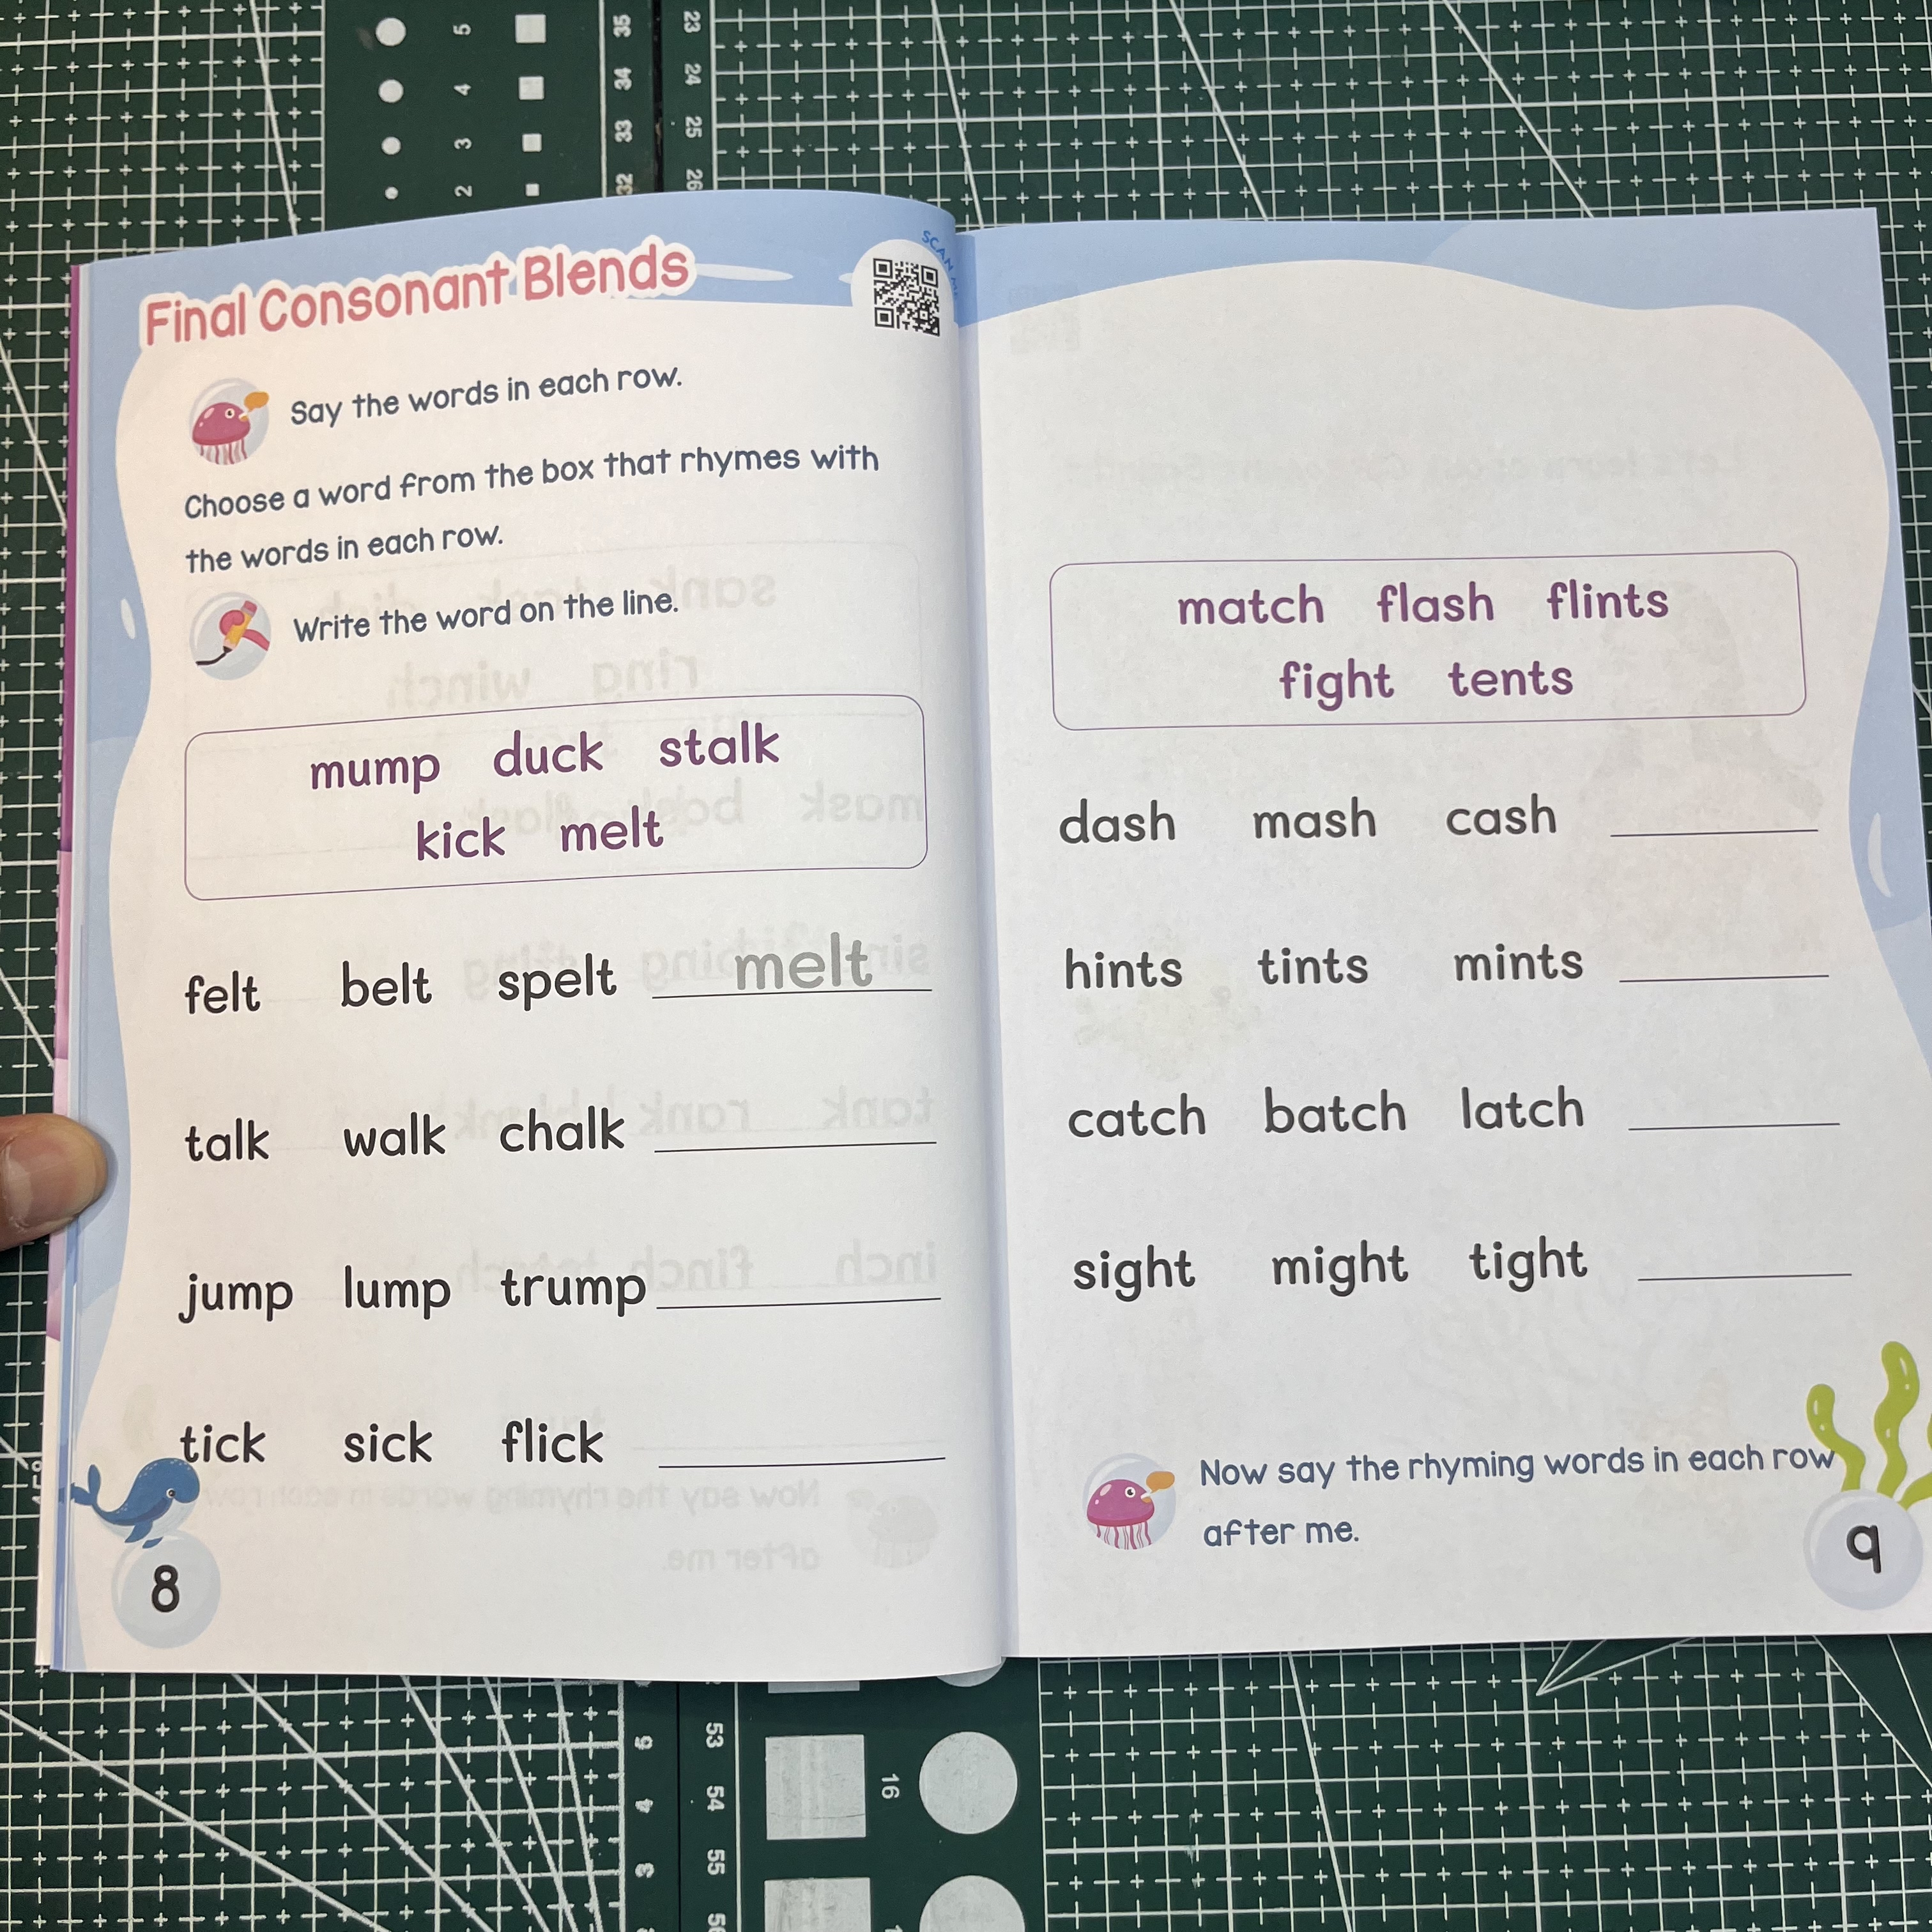 Final Consonant Blends
SCAN
Say the words in each row.
Choose a word from the box that rhymes with
the words in each row.
Write the word on the line.
mump duck stalk
kick melt
felt belt spelt melt
talk walk chalk
jump lump trump
tick sick flick
8
match flash flints
fight tents
dash mash cash
hints tints mints
catch batch latch
sight might tight
Now say the rhyming words in each row
after me.
9
5
4
3
2
35
34
33
32
23
24
25
26
5
4
3
53
54
55
16